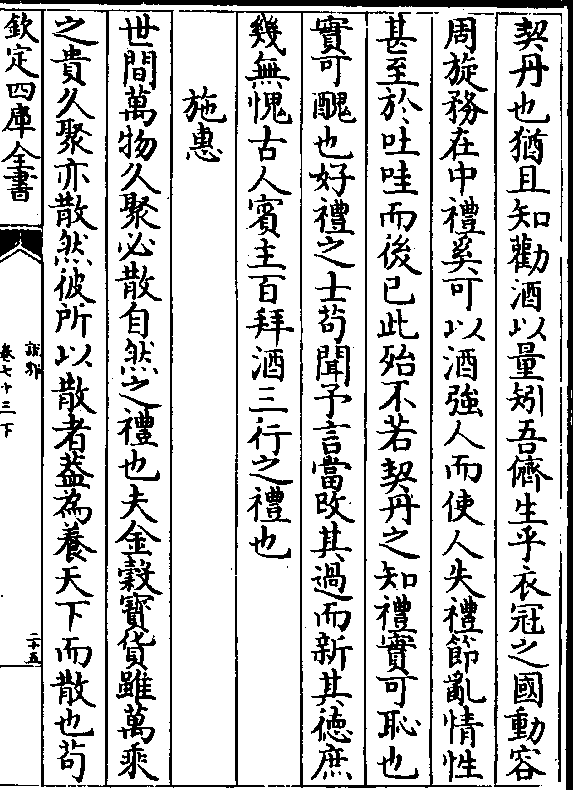 契丹也猶且知勸酒以量矧吾儕生乎衣冠之國動容
周旋務在中禮奚可以酒強人而使人失禮節亂情性
甚至於吐哇而後已此殆不若契丹之知禮實可恥也
實可醜也好禮之士茍聞予言當改其過而新其徳庶
幾無愧古人賓主百拜酒三行之禮也
施惠
世間萬物久聚必散自然之禮也夫金穀寳貨雖萬乘
之貴久聚亦散然彼所以散者葢為養天下而散也茍
欽定四庫全書
說郛
卷七十三下
二十五